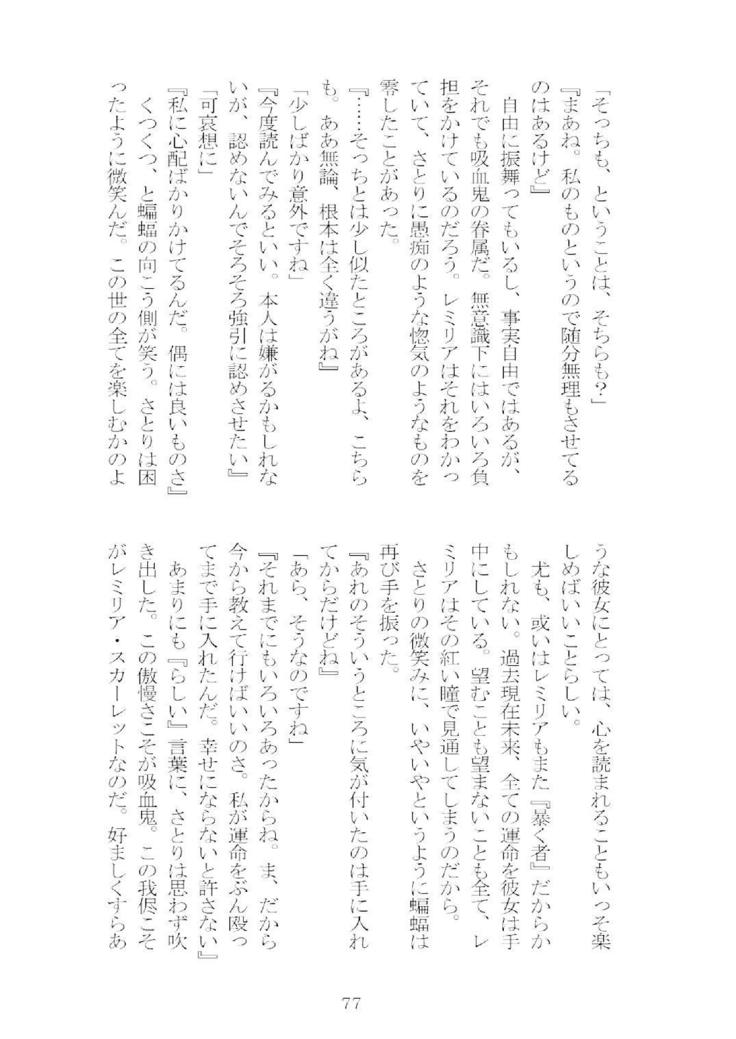 「そっちも、ということは、そちらも？」
『まあね。私のものというので随分無理もさせてる
のはあるけど』
　自由に振舞ってもいるし、事実自由ではあるが、
それでも吸血鬼の眷属だ。無意識下にはいろいろ負
担をかけているのだろう。レミリアはそれをわかっ
ていて、さとりに愚痴のような惚気のようなものを
零したことがあった。
『……そっちとは少し似たところがあるよ、こちら
も。ああ無論、根本は全く違うがね』
「少しばかり意外ですね」
『今度読んでみるといい。本人は嫌がるかもしれな
いが、認めないんでそろそろ強引に認めさせたい』
「可哀想に」
『私に心配ばかりかけてるんだ。偶には良いものさ』
　くつくつ、と蝙蝠の向こう側が笑う。さとりは困
ったように微笑んだ。この世の全てを楽しむかのよ
うな彼女にとっては、心を読まれることもいっそ楽
しめばいいことらしい。
　尤も、或いはレミリアもまた『暴く者』だからか
もしれない。過去現在未来、全ての運命を彼女は手
中にしている。望むことも望まないことも全て、レ
ミリアはその紅い瞳で見通してしまうのだから。
　さとりの微笑みに、いやいやというように蝙蝠は
再び手を振った。
『あれのそういうところに気が付いたのは手に入れ
てからだけどね』
「あら、そうなのですね」
『それまでにもいろいろあったからね。ま、だから
今から教えて行けばいいのさ。私が運命をぶん殴っ
てまで手に入れたんだ。幸せにならないと許さない』
　あまりにも『らしい』言葉に、さとりは思わず吹
き出した。この傲慢さこそが吸血鬼。この我侭こそ
がレミリア・スカーレットなのだ。好ましくすらあ
77